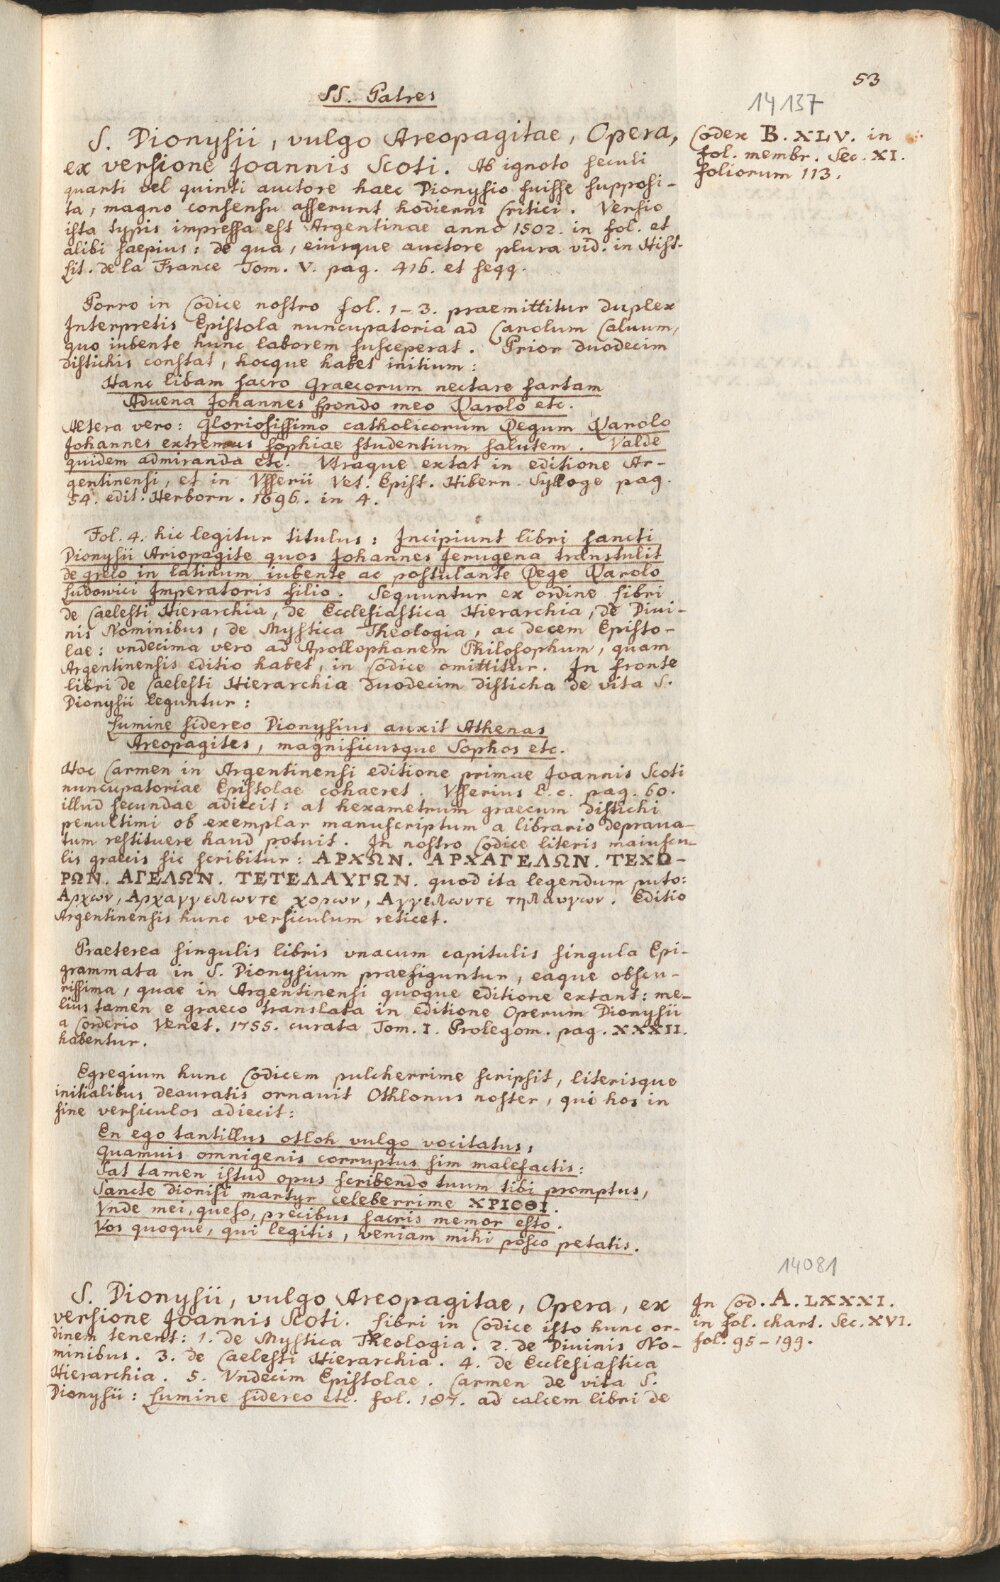 53
SS. Patres
14137
S. Dionysii, vulgo Areopagitae, Opera,
ex versione Joannis Scoti. Ab ignoto seculi
quarti vel quinti auctore haec Dionysio fuisse supposi-
ta, magno consensu asserunt hodierni Critici. Versio
ista typis impressa est Argentinae anno 1502. in fol. et
alibi saepius: de qua, eiusque auctore plura vid. in Hist.
Lit. de la France Tom. V. pag. 416. et seqq.
Codex B. XLV. in
fol. membr. Sec. XI.
foliorum 113.
Porro in Codice nostro fol. 1-3. praemittitur duplex
Interpretis Epistola nuncupatoria ad Carolum Calvum,
quo iubente hunc laborem susceperat. Prior duodecim
distichis constat, hocque habet initium:
Hanc libam sacro Graecorum nectare fartam
Aduena Johannes spondo meo Karolo etc.
Altera vero: Gloriosissimo catholicorum Regum Karolo
Johannes extremus sophiae studentium salutem. Valde
quidem admiranda etc. Utraque extat in editione Ar-
gentinensi, et in Vsserii Vet. Epist. Hibern. Sylloge pag.
54. edit. Herborn. 1696. in 4.
Fol. 4. hic legitur titulus: Incipiunt libri sancti
Dionysii Ariopagite quos Johannes Jerugena transtulit
de greco in latinum iubente ac postulante Rege Karolo
Ludowici Imperatoris filio. Sequuntur ex ordine Libri
de Caelesti Hierarchia, de Ecclesiastica Hierarchia, de Divi-
nis Nominibus, de Mystica Theologia, ac decem Episto-
lae: vndecima vero ad Apollophanem Philosophum, quam
Argentinensis editio habet, in Codice omittitur. In fronte
libri de Caelesti Hierarchia duodecim disticha de vita S.
Dionysii leguntur:
Lumine sidereo Dionysius auxit Athenas
Areopagites, magnificusque Sophos etc.
Hoc Carmen in Argentinensi editione primae Joannis Scoti
nuncupatoriae Epistolae cohaeret. Vsserius l. c. pag. 60.
illud secundae adiecit: at hexametrum graecum distichi
penultimi ob exemplar manuscriptum a librario deprava-
tum restituere haud potuit. In nostro Codice literis maiuscu-
lis graecis sic scribitur: ΑΡΧΩΝ. ΑΡΧΑΓΕΛΩΝ. ΤΕΧΟ-
ΡΩΝ. ΑΓΕΛΩΝ. ΤΕΤΕΛΑΥΓΩΝ. quod ita legendum puto:
Αρχων, Αρχαγγελωντε χορων, Αγγελωντε τηλαυγων. Editio
Argentinensis hunc versiculum reticet.
Praeterea singulis libris vnacum capitulis singula Epi-
grammata in S. Dionysium praefiguntur, eaque obscu-
rissima, quae in Argentinensi quoque editione extant: me-
lius tamen e graeco translata in editione Operum Dionysii
a Corderio Venet. 1755. curata Tom. I. Prolegom. pag. XXXII.
habentur.
Egregium hunc Codicem pulcherrime scripsit, literisque
initialibus deauratis ornauit Othlonus noster, qui hos in
fine versiculos adiecit:
En ego tantillus otloh vulgo vocitatus,
Quamuis omnigenis corruptus sim malefactis:
Sat tamen istud opus scribendo tuum tibi promptus,
Sancte dionisi martyr celeberrime ΧΡΙϹΘΙ.
Vnde mei, queso, precibus sacris memor esto.
Vos quoque, qui legitis, veniam mihi posco petatis.
14081
S. Dionysii, vulgo Areopagitae, Opera, ex
versione Joannis Scoti. Libri in Codice isto hunc or-
dinem tenent: 1. de Mystica Theologia. 2. de Divinis No-
minibus. 3. de Caelesti Hierarchia. 4. de Ecclesiastica
Hierarchia. 5. Vndecim Epistolae. Carmen de vita S.
Dionysii: Lumine sidereo etc. fol. 187. ad calcem libri de
In Cod. A. LXXXI.
in fol. chart. Sec. XVI.
fol. 95-199.